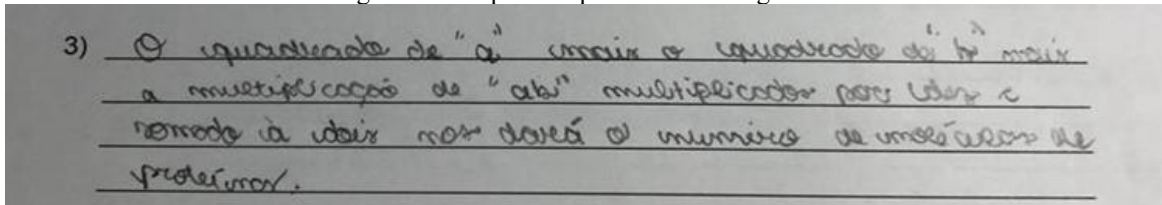 3) O quadrado de "a" mais o quadrado do "b" mais
a multiplicação de "ab" multiplicador por dez e
somado à dois nos dará o número de moléculas de
proteínas.